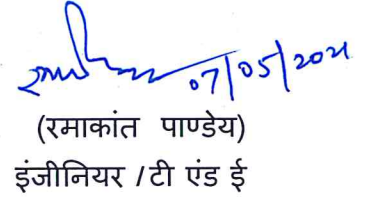 07/05/2021
(रमाकांत पाण्डेय)
इंजीनियर /टी एंड ई